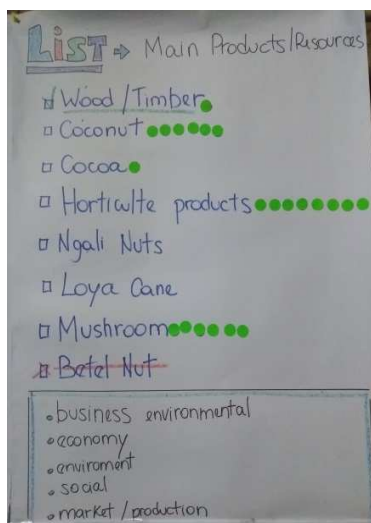 LIST ⇒ Main Products/Resources
Wood/Timber
Coconut
Cocoa
Horticulte products
Ngali Nuts
Loya Cane
Mushroom
Betel Nut
• business environmental
• economy
• enviroment
• social
• market/production